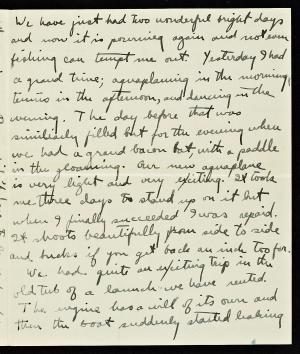 We have just had two wonderful bright days
and now it is pouring again and not even
fishing can tempt me out. Yesterday I had
a grand time; aquaplaning in the morning,
tennis in the afternoon, and dancing in the
evening. The day before that was
similarly filled but for the evening when
we had a grand bacon bat with a paddle
in the gloaming. Our new aquaplane
is very light and very exciting. It took
me three days to stand up on it but
when I finally succeeded I was repaid.
It shoots beautifully from side to side
and bucks if you get back an inch too far.
We had quite an exciting trip in the
old tub of a launch we have rented.
The engine has a will of its own and
then the boat suddenly started leaking